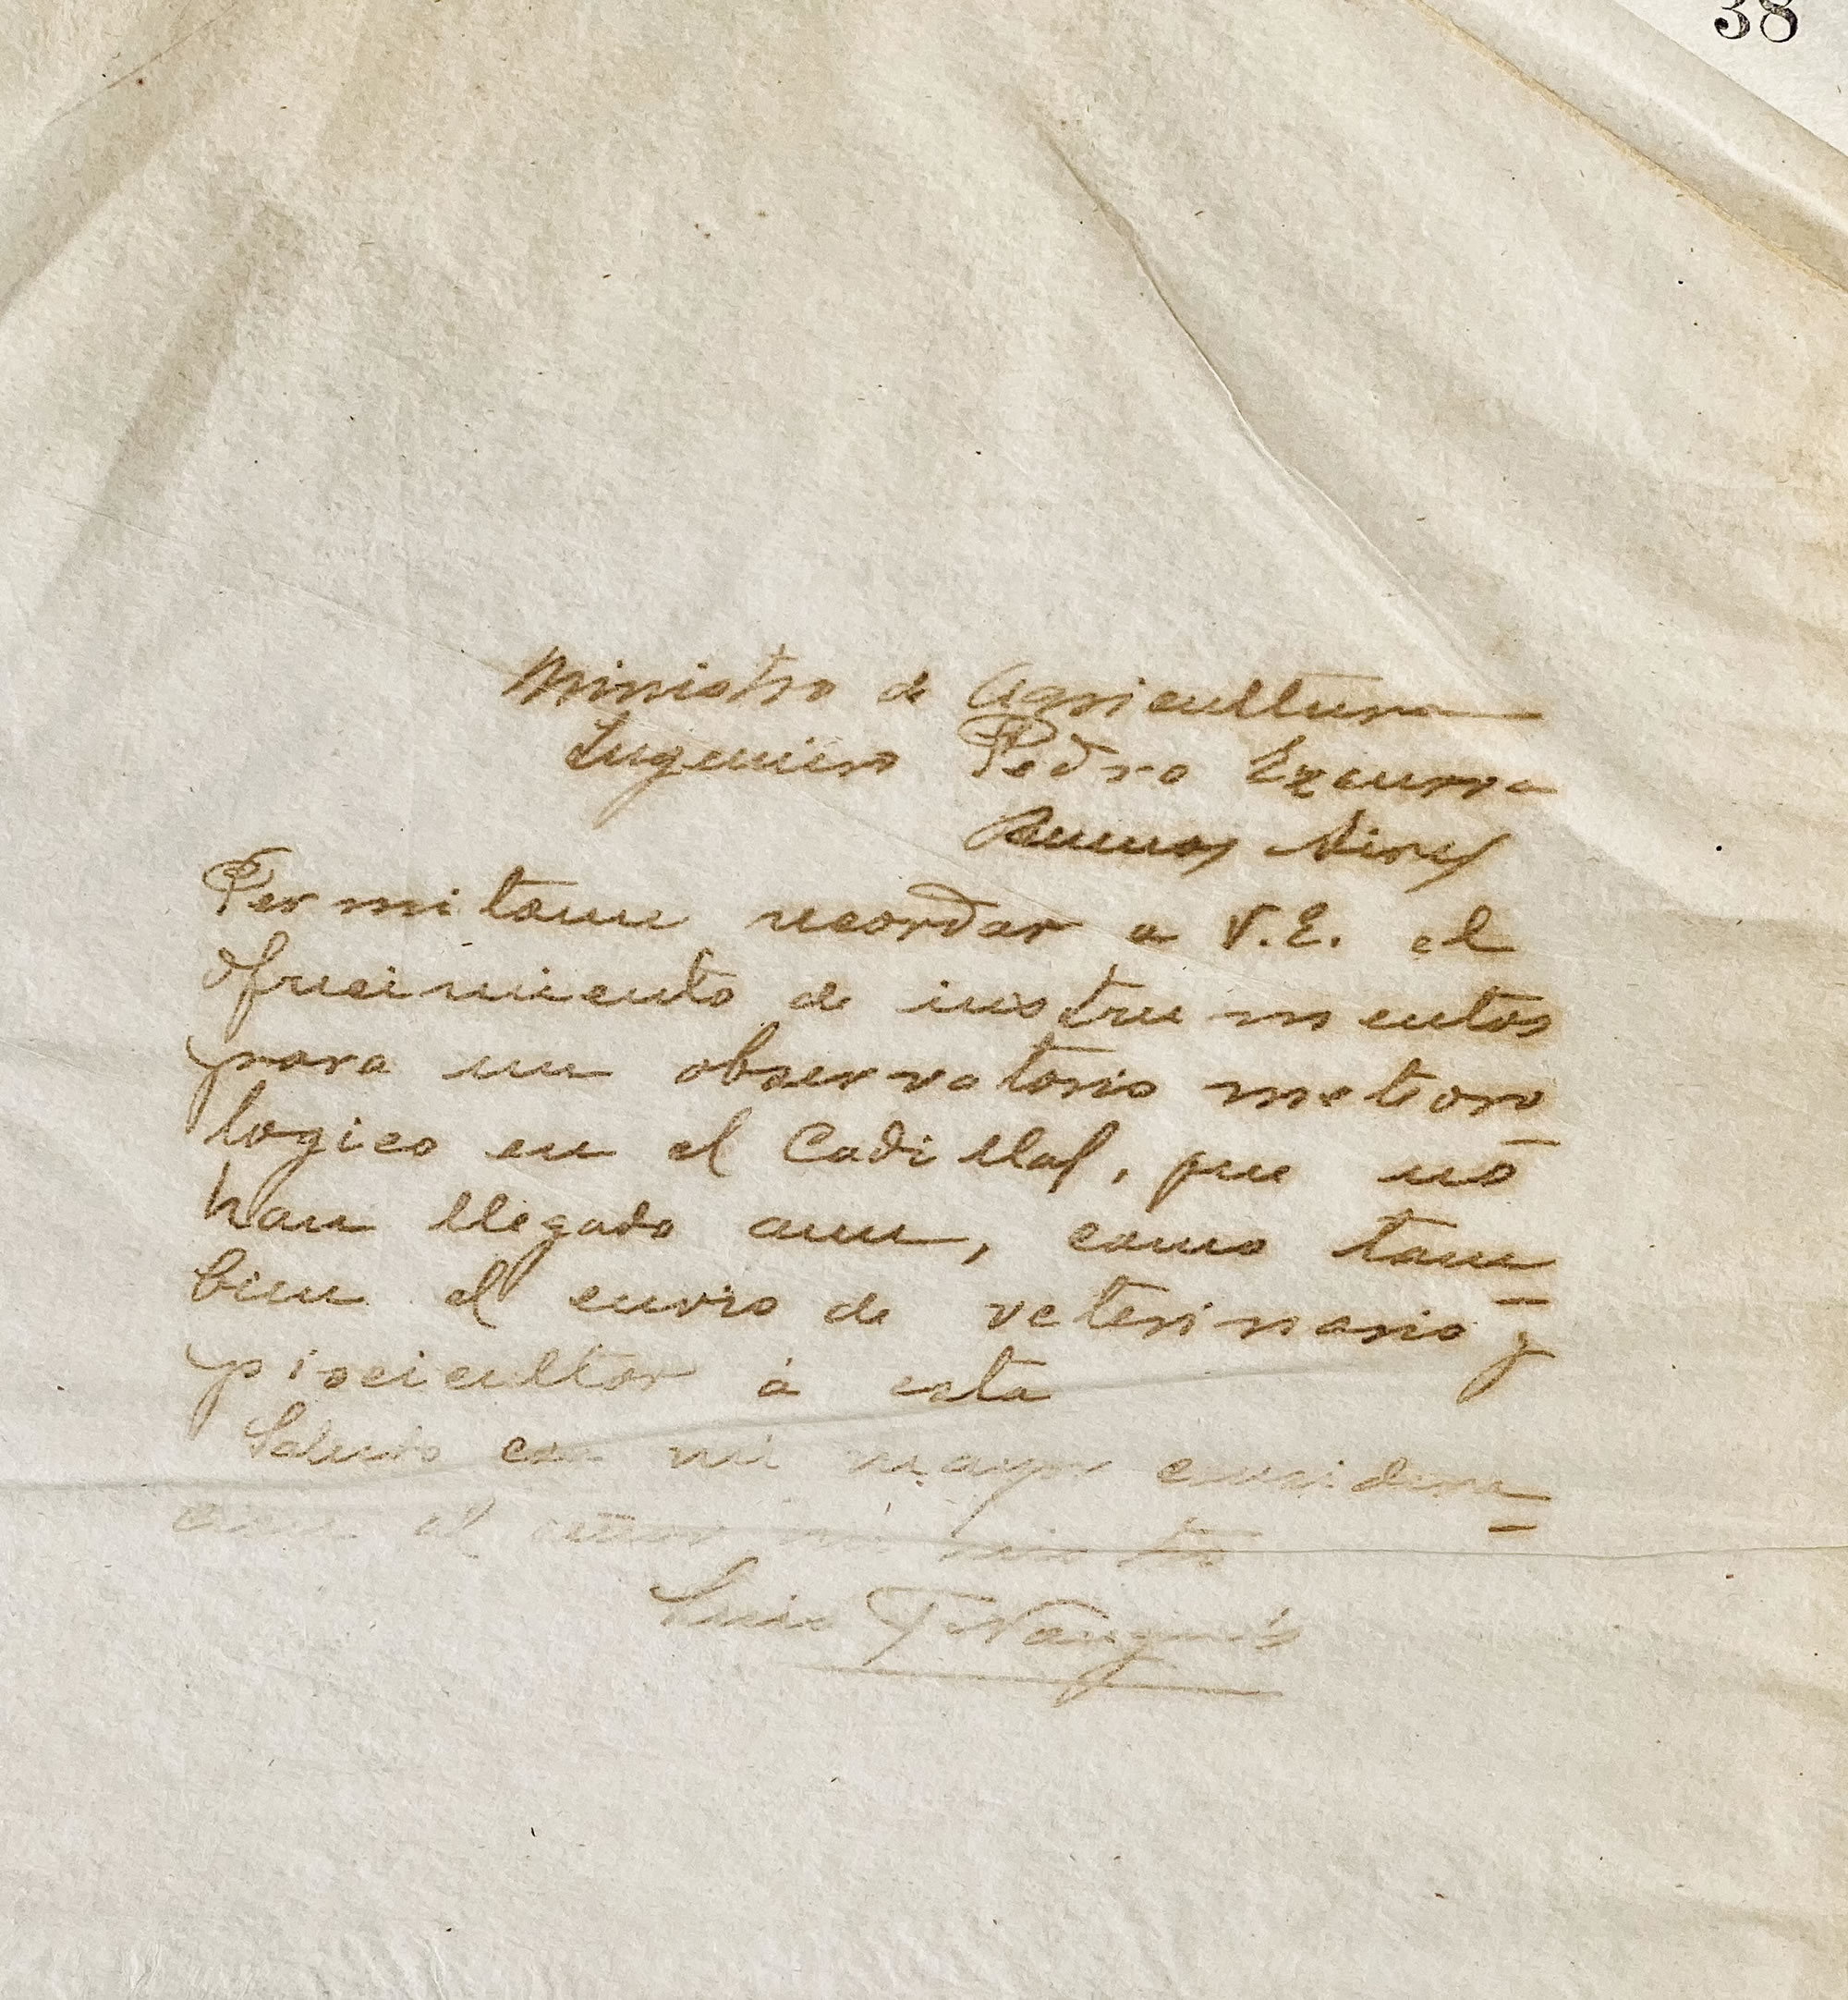 38
Ministro de Agricultura
Ingeniero Pedro Ezcurra
Buenos Aires
Permitame recordar a V.E. el
ofrecimiento de instrumentos
para un observatorio meteoro
logico en el Cadillal, que no
han llegado aun, como tam
bien el envio de veterinario y
piscicultor á esta
Saludo con mi mayor considera
cion al señor ministro
Luis F Nougués